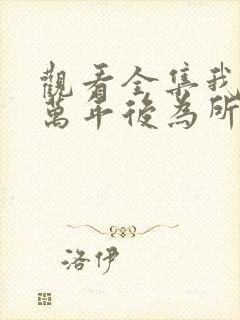 觀看全集我
萬年後為所
洛伊